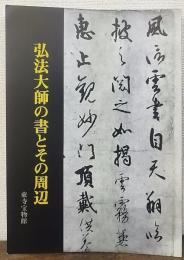 風信雲書自天翔臨
披之閱之如揭雲霧兼
惠止觀妙門頂戴供養
弘法大師の書とその周辺
東寺宝物館